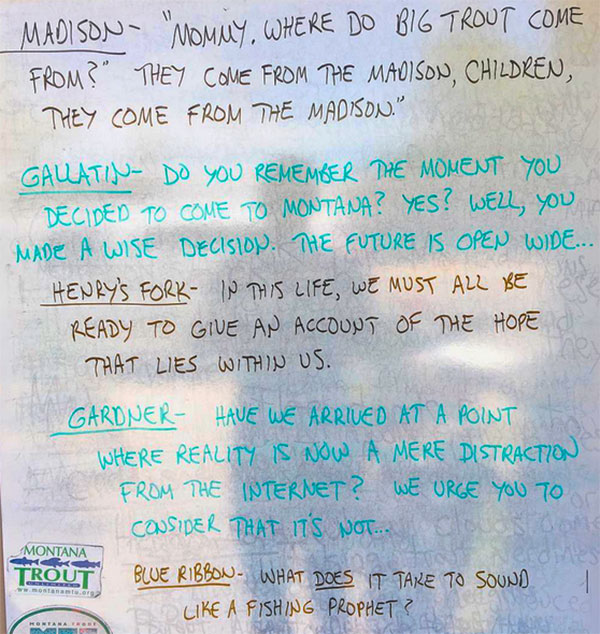 MADISON- "MOMMY. WHERE DO BIG TROUT COME
FROM?" THEY COME FROM THE MADISON, CHILDREN,
THEY COME FROM THE MADISON."
GALLATIN- DO YOU REMEMBER THE MOMENT YOU
DECIDED TO COME TO MONTANA? YES? WELL, YOU
MADE A WISE DECISION. THE FUTURE IS OPEN WIDE...
HENRY'S FORK- IN THIS LIFE, WE MUST ALL BE
READY TO GIVE AN ACCOUNT OF THE HOPE
THAT LIES WITHIN US.
GARDNER- HAVE WE ARRIVED AT A POINT
WHERE REALITY IS NOW A MERE DISTRACTION
FROM THE INTERNET? WE URGE YOU TO
CONSIDER THAT IT'S NOT...
MONTANA
TROUT
UNLIMITED
www.montanatu.org
BLUE RIBBON- WHAT DOES IT TAKE TO SOUND
LIKE A FISHING PROPHET?
MONTANA TROUT